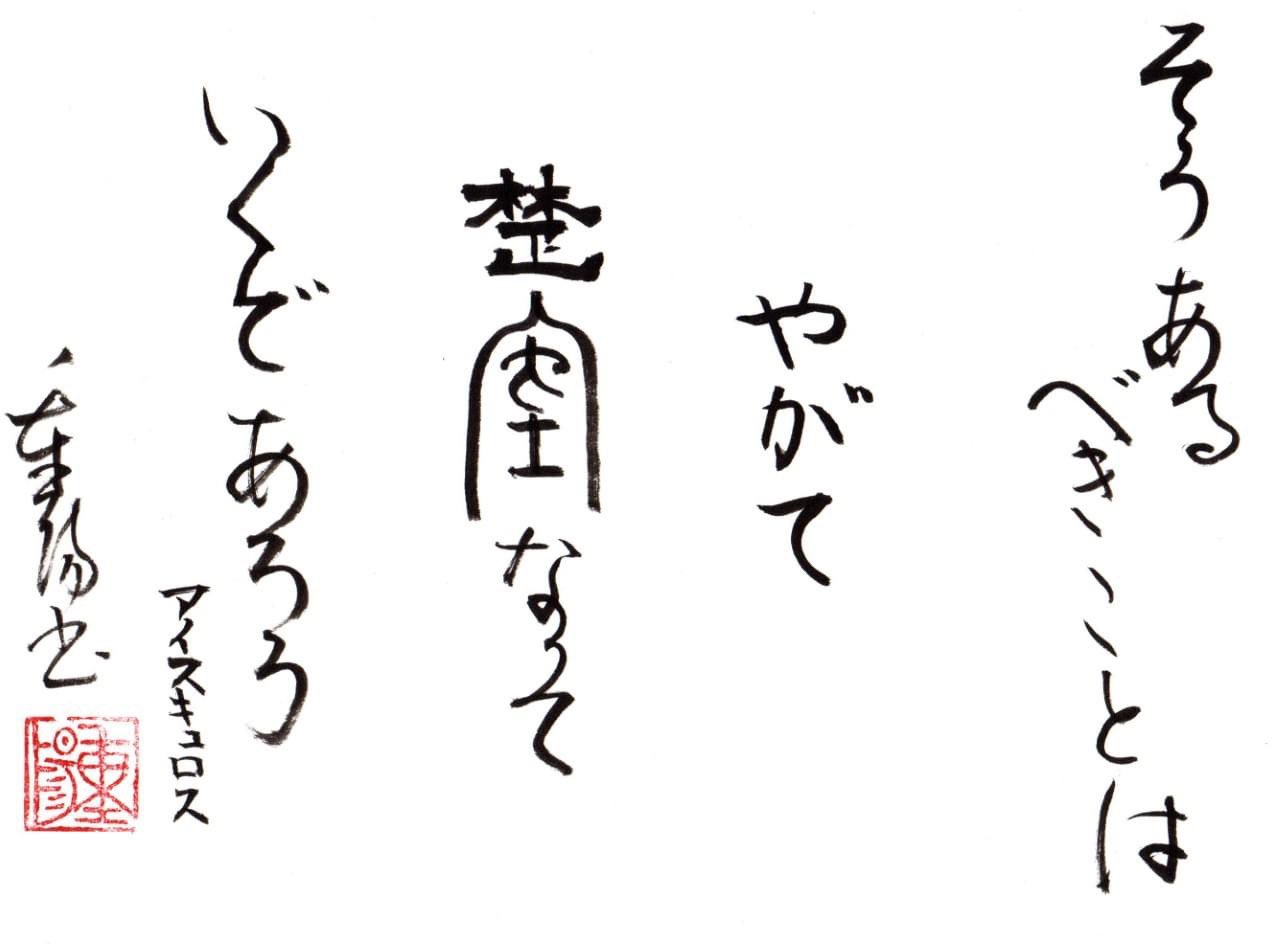 そうあるべきことは
やがて
楚室なって
いくであろう
アイスキュロス
重陽書
重陽